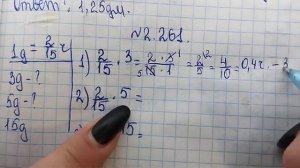 Ответ: 1,25дм.
№2.261.
1д = 2/15 г
3д - ?
5д - ?
15д
1) 2/15 · 3 = 2 · 3 1 / 5 15 · 1 = 2/5 \2 = 4/10 = 0,4г. - 3
2) 2/15 · 5 =
15 =